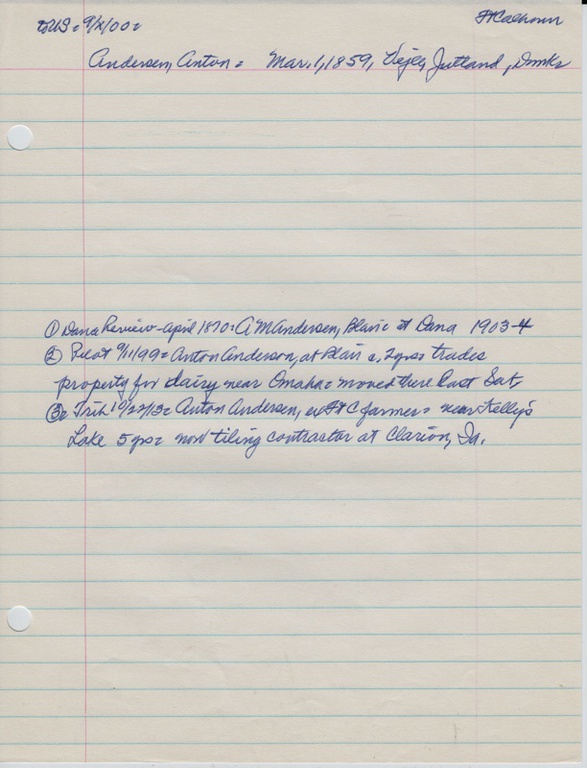 Ft Calhoun
DUS = 9/X/00 =
Andersen, Anton = Mar. 1, 1859, Vejle, Jutland, Dnmk
① Dana Review - April 1870 = A M Andersen, Blair = at Dana 1903-4
② Pilot 9/11/99 = Anton Anderson, at Blair c. 2 yrs = trades
property for dairy near Omaha = moved there last Sat,
③ Trib 10/22/13 = Anton Andersen, ex Ft C farmer = near Kelly's
Lake 5 yrs = now tiling contractor at Clarion, Ia.